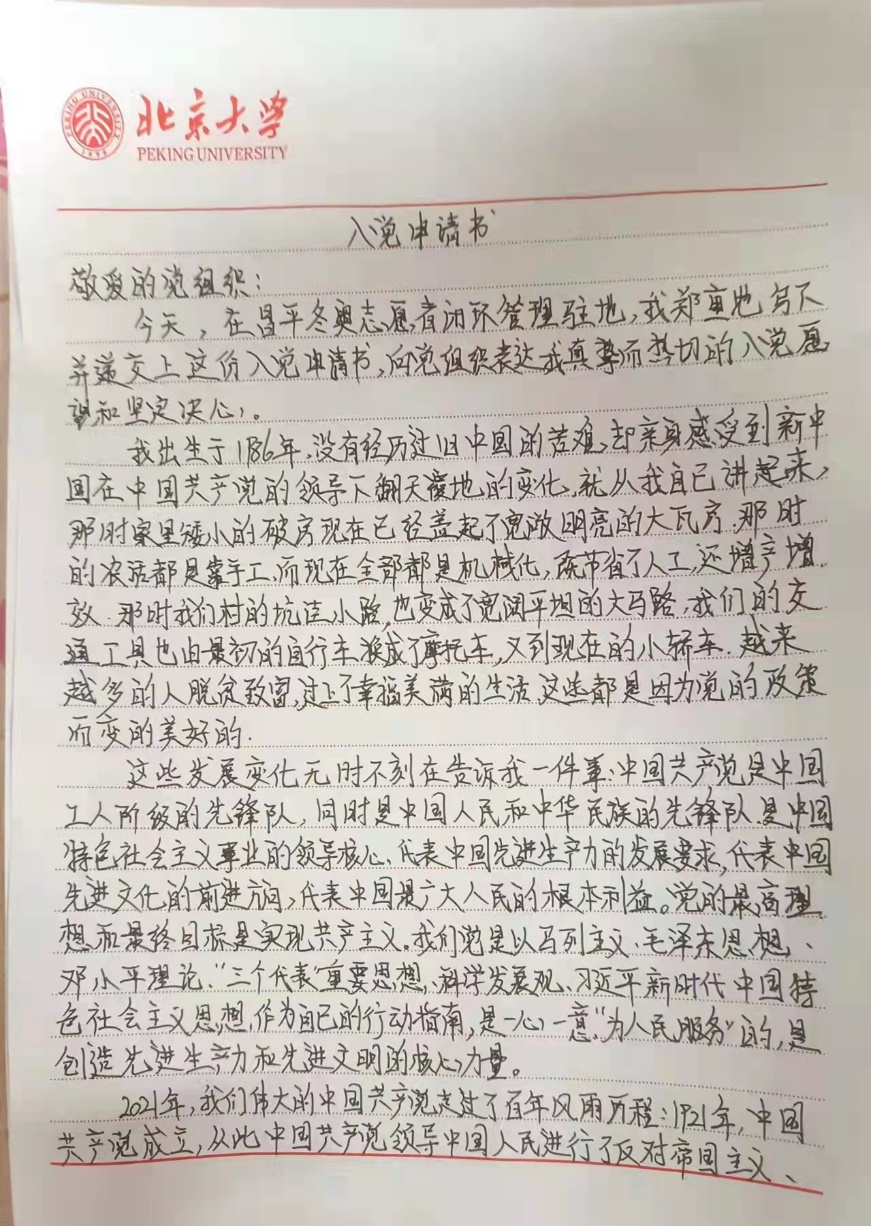 北京大学
PEKING UNIVERSITY
PEKING UNIVERSITY
1898
入党申请书
敬爱的党组织：
今天，在昌平冬奥志愿者闭环管理驻地，我郑重地写下
并递交上这份入党申请书，向党组织表达我真挚而热切的入党愿
望和坚定决心。
我出生于1986年，没有经历过旧中国的苦难，却亲身感受到新中
国在中国共产党的领导下翻天覆地的变化，就从我自己讲起来，
那时家里矮小的破房现在已经盖起了宽敞明亮的大瓦房．那时
的农活都是靠手工，而现在全部都是机械化，既节省了人工，还增产增
效．那时我们村的坑洼小路，也变成了宽阔平坦的大马路，我们的交
通工具也由最初的自行车换成了摩托车，又到现在的小轿车．越来
越多的人脱贫致富，过上了幸福美满的生活．这些都是因为党的政策
而变的美好的．
这些发展变化无时不刻在告诉我一件事：中国共产党是中国
工人阶级的先锋队，同时是中国人民和中华民族的先锋队，是中国
特色社会主义事业的领导核心，代表中国先进生产力的发展要求，代表中国
先进文化的前进方向，代表中国最广大人民的根本利益。党的最高理
想和最终目标是实现共产主义。我们党是以马列主义、毛泽东思想、
邓小平理论、“三个代表”重要思想、科学发展观、习近平新时代中国特
色社会主义思想，作为自己的行动指南，是一心一意“为人民服务”的，是
创造先进生产力和先进文明的核心力量。
2021年，我们伟大的中国共产党走过了百年风雨历程：1921年，中国
共产党成立，从此中国共产党领导中国人民进行了反对帝国主义、